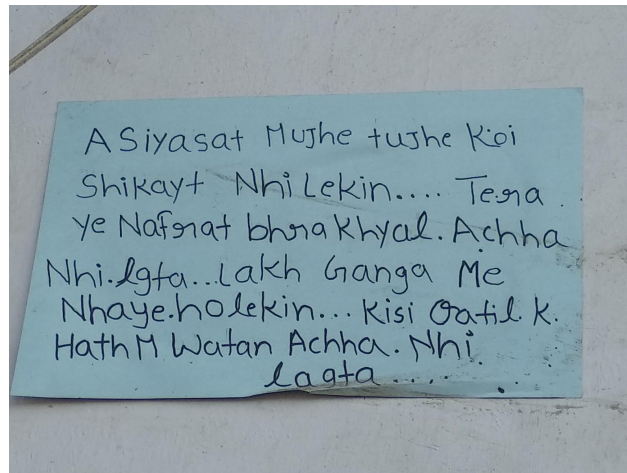 A Siyasat Mujhe tujhe Koi
Shikayt Nhi Lekin.... Tera
ye Nafrat bhra Khyal. Achha
Nhi.lgta...Lakh Ganga Me
Nhaye.ho lekin... Kisi Qatil K.
Hath M Watan Achha. Nhi
lagta....